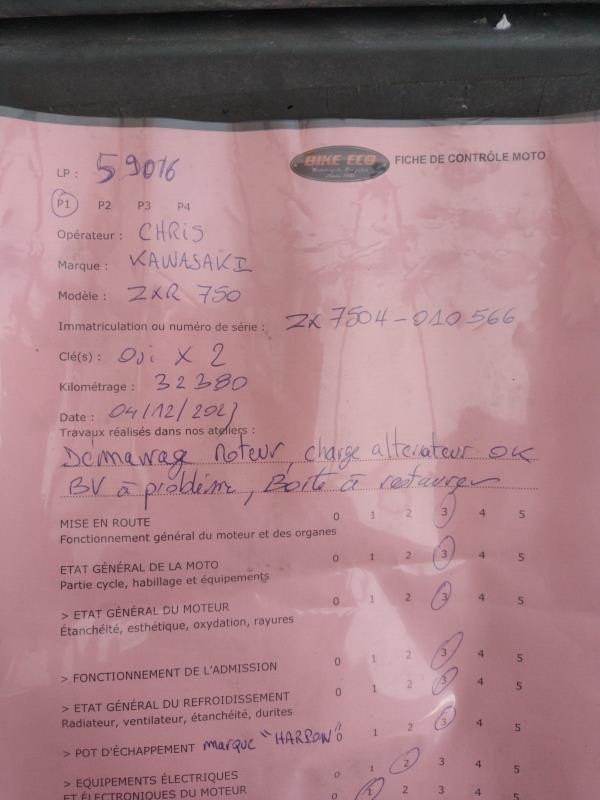 LP : 59016
BIKE ECO
FICHE DE CONTRÔLE MOTO
P1 P2 P3 P4
Opérateur : CHRIS
Marque : KAWASAKI
Modèle : ZXR 750
Immatriculation ou numéro de série : ZX 7504-010566
Clé(s) : OUI X 2
Kilométrage : 32380
Date : 04/12/2023
Travaux réalisés dans nos ateliers :
Démarrage moteur, charge alternateur OK
BV à problème, Boite à restaurer
MISE EN ROUTE 0 1 2 3 4 5
Fonctionnement général du moteur et des organes
ETAT GÉNÉRAL DE LA MOTO 0 1 2 3 4 5
Partie cycle, habillage et équipements
> ETAT GÉNÉRAL DU MOTEUR 0 1 2 3 4 5
Étanchéité, esthétique, oxydation, rayures
> FONCTIONNEMENT DE L'ADMISSION 0 1 2 3 4 5
> ETAT GÉNÉRAL DU REFROIDISSEMENT 0 1 2 3 4 5
Radiateur, ventilateur, étanchéité, durites
> POT D'ÉCHAPPEMENT marque "HARPON" 0 1 2 3 4 5
> EQUIPEMENTS ÉLECTRIQUES 0 1 2 3 4 5
ET ÉLECTRONIQUES DU MOTEUR 0 1 2 3 4 5